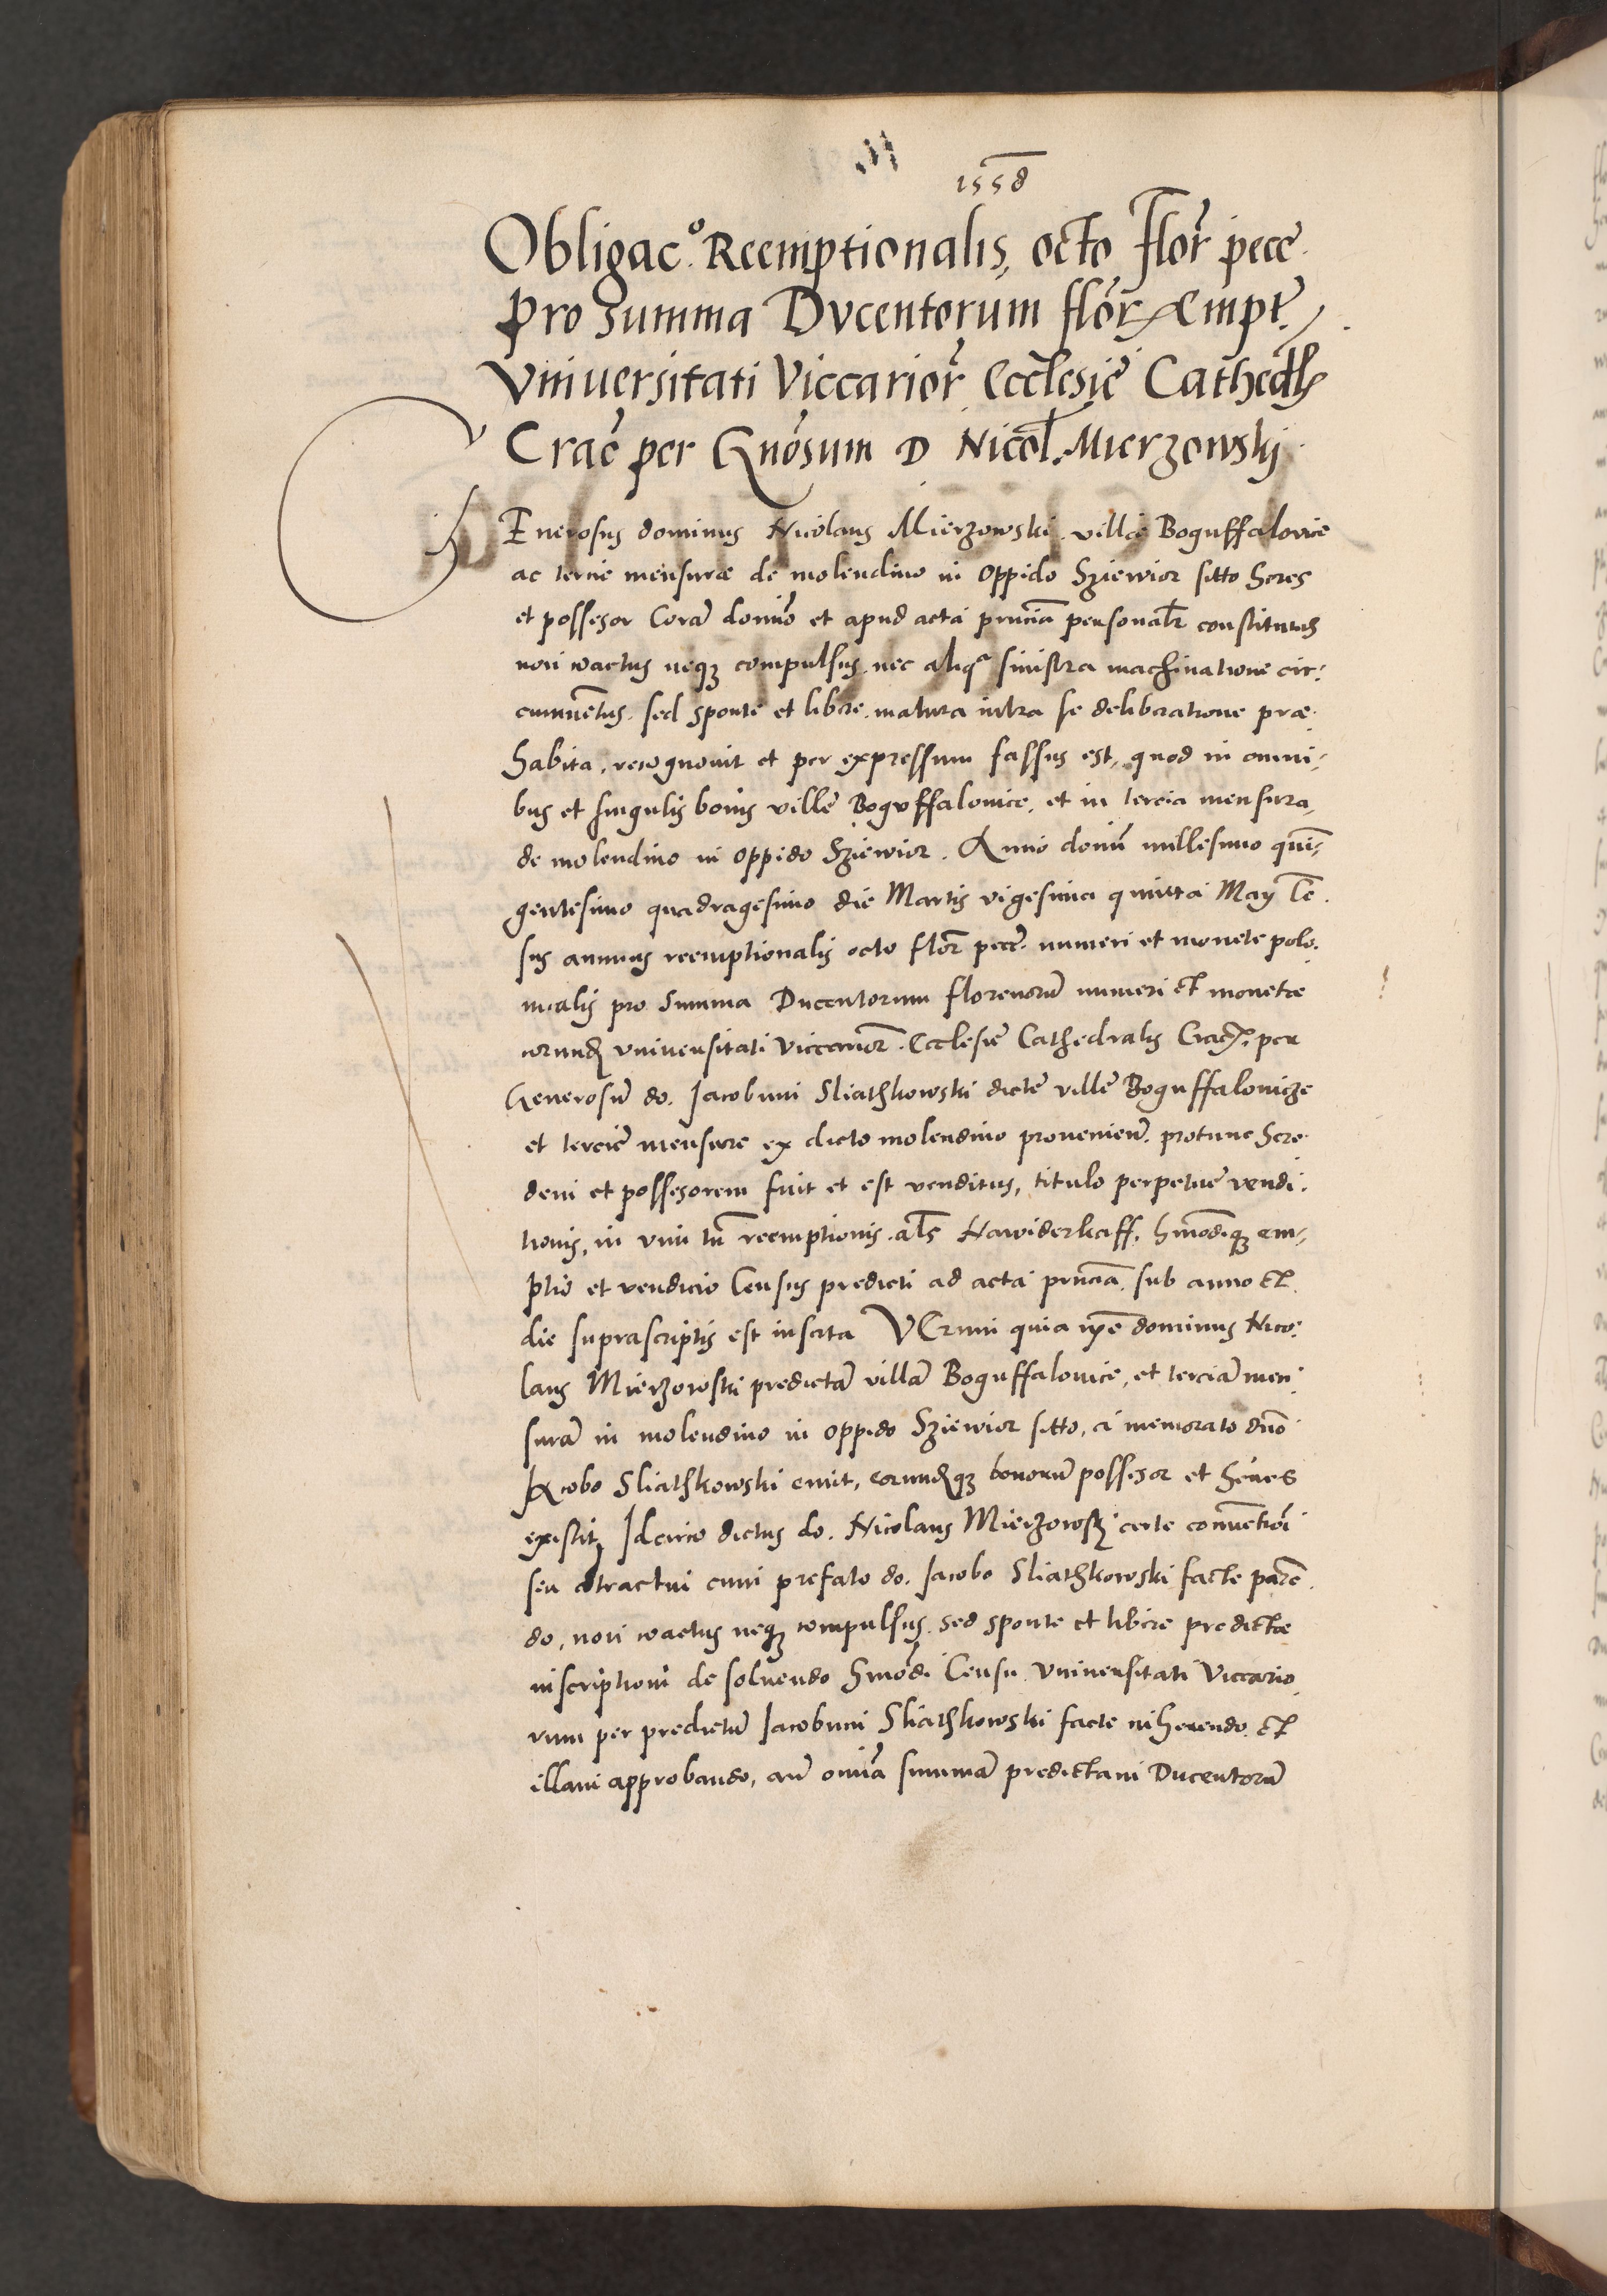 1558
Obligac.º Reemptionalis, octo Flor̃ pecc̃
Pro Summa Ducentorum flor̃ Empt̃
Vniuersitati Viccarior̃ Ecclesiẽ Cathedr̃
Crac̃ per Gnõsum D Nicol. Mierzowskj
GEnerosus dominus Nicolaus Mierzowski villæ Boguffalovice
ac terciæ mensuræ de molendino in Oppido Sziewior sitto heres
et possesor Corã dominõ et apud acta prñciã personalr̃ constitutus
non coactus neqꝫ compulsus nec aliqª sinistra machinatione cir:
cumuẽtus sed sponte et libere matura intra se deliberatione præ
habita, recognouit et per expressum fassus est, quod in omni:
bus et singulis bonis villẽ Boguffalouice, et in tercia mensura,
de molendino in Oppido Sziewior. Anno domĩ millesimo quĩ:
gentesimo quadragesimo die Martis vigesima quinta May Cẽ
sus annuus reemptionalis octo flor̃ pecc̃ numeri et monete polo:
nicalis pro Summa Ducentorum florenorũ numeri et monetæ
eorundẽ vniuersitati Viccarior̃ Ecclesiẽ Cathedralis Crac̃ per
Generosũ do. Jacobum Sliathkowski dictẽ villẽ Boguffalouicze
et terciẽ mensure ex dicto molendino proueniẽ. protunc here
dem et possesorem fuit et est venditus, titulo perpetuẽ vendi:
tionis, in vim tñ reemptionis als̃ Nawiderkaff, hmõdiqꝫ em:
ptio et vendicio Census predicti ad acta prñciã sub anno et
die suprascriptis est inscrta VErum quia ipse dominus Nico:
laus Mierzowski predictã villã Boguffalouice, et terciã men:
surã in molendino in oppido Sziewior sitto, a memorato dño
Jacobo Sliathkowski emit, eorundẽqꝫ bonorũ possesor et heres
existit, Idcirco dictus do. Nicolaus Mierzowsk̃i certe conuẽtioĩ
seu cõtractui cum prefato do. Jacobo Sliathkowski facte parẽ
do, non coactus neqꝫ compulsus sed sponte et libere predictæ
inscriptioni de soluendo hmõdi Censu Vniuersitati Viccario
rum per predictũ Jacobum Sliathkowski facte inherendo et
illam approbando, añ om̃ia summã predictam Ducentorũ